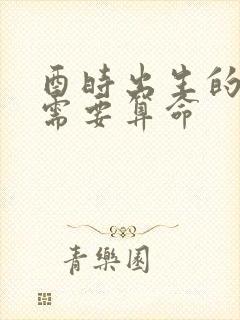 酉時出生的
需要算命
青樂園